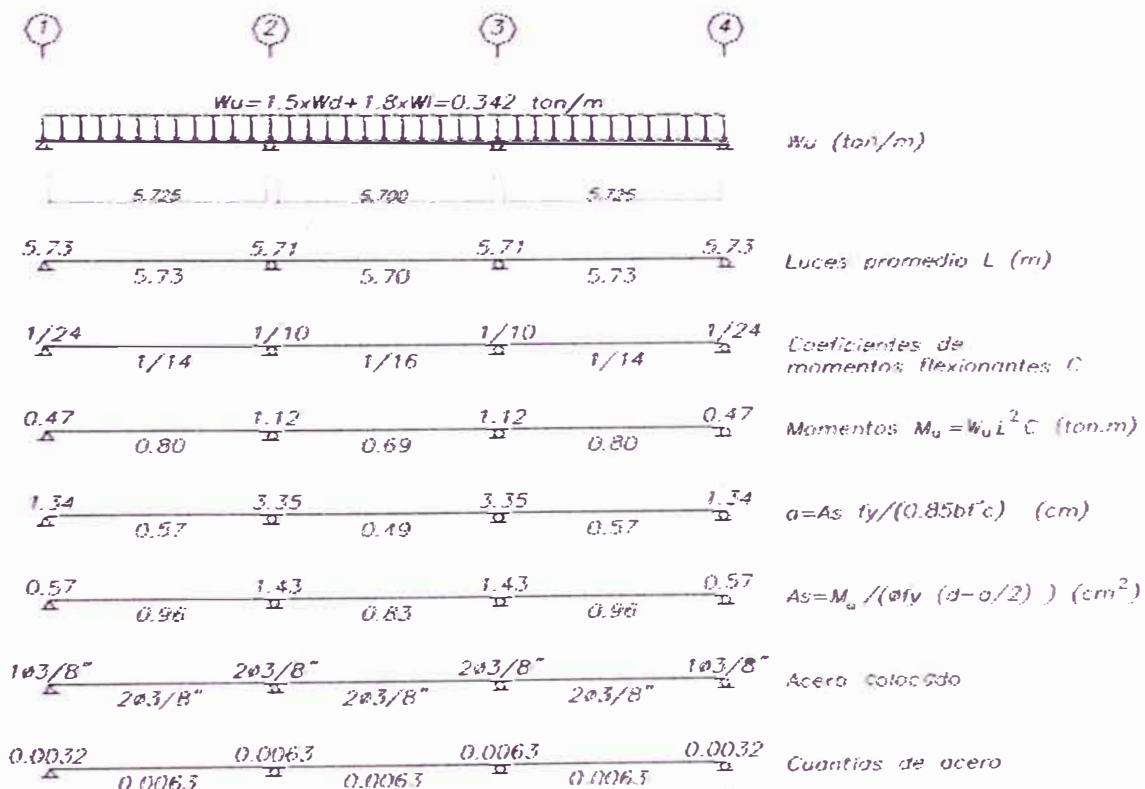 1 2 3 4
Wu=1.5xWd+1.8xWl=0.342 ton/m
Wu (ton/m)
5.725 5.700 5.725
5.73 5.71 5.71 5.73
5.73 5.70 5.73
Luces promedio L (m)
1/24 1/10 1/10 1/24
1/14 1/16 1/14
Coeficientes de
momentos flexionantes C
0.47 1.12 1.12 0.47
0.80 0.69 0.80
Momentos Mu=WuL²C (ton.m)
1.34 3.35 3.35 1.34
0.57 0.49 0.57
a=As fy/(0.85bf'c) (cm)
0.57 1.43 1.43 0.57
0.96 0.83 0.96
As=Mu/(øfy (d-a/2) ) (cm²)
1ø3/8" 2ø3/8" 2ø3/8" 1ø3/8"
2ø3/8" 2ø3/8" 2ø3/8"
Acero colocado
0.0032 0.0063 0.0063 0.0032
0.0063 0.0063 0.0063
Cuantias de acero